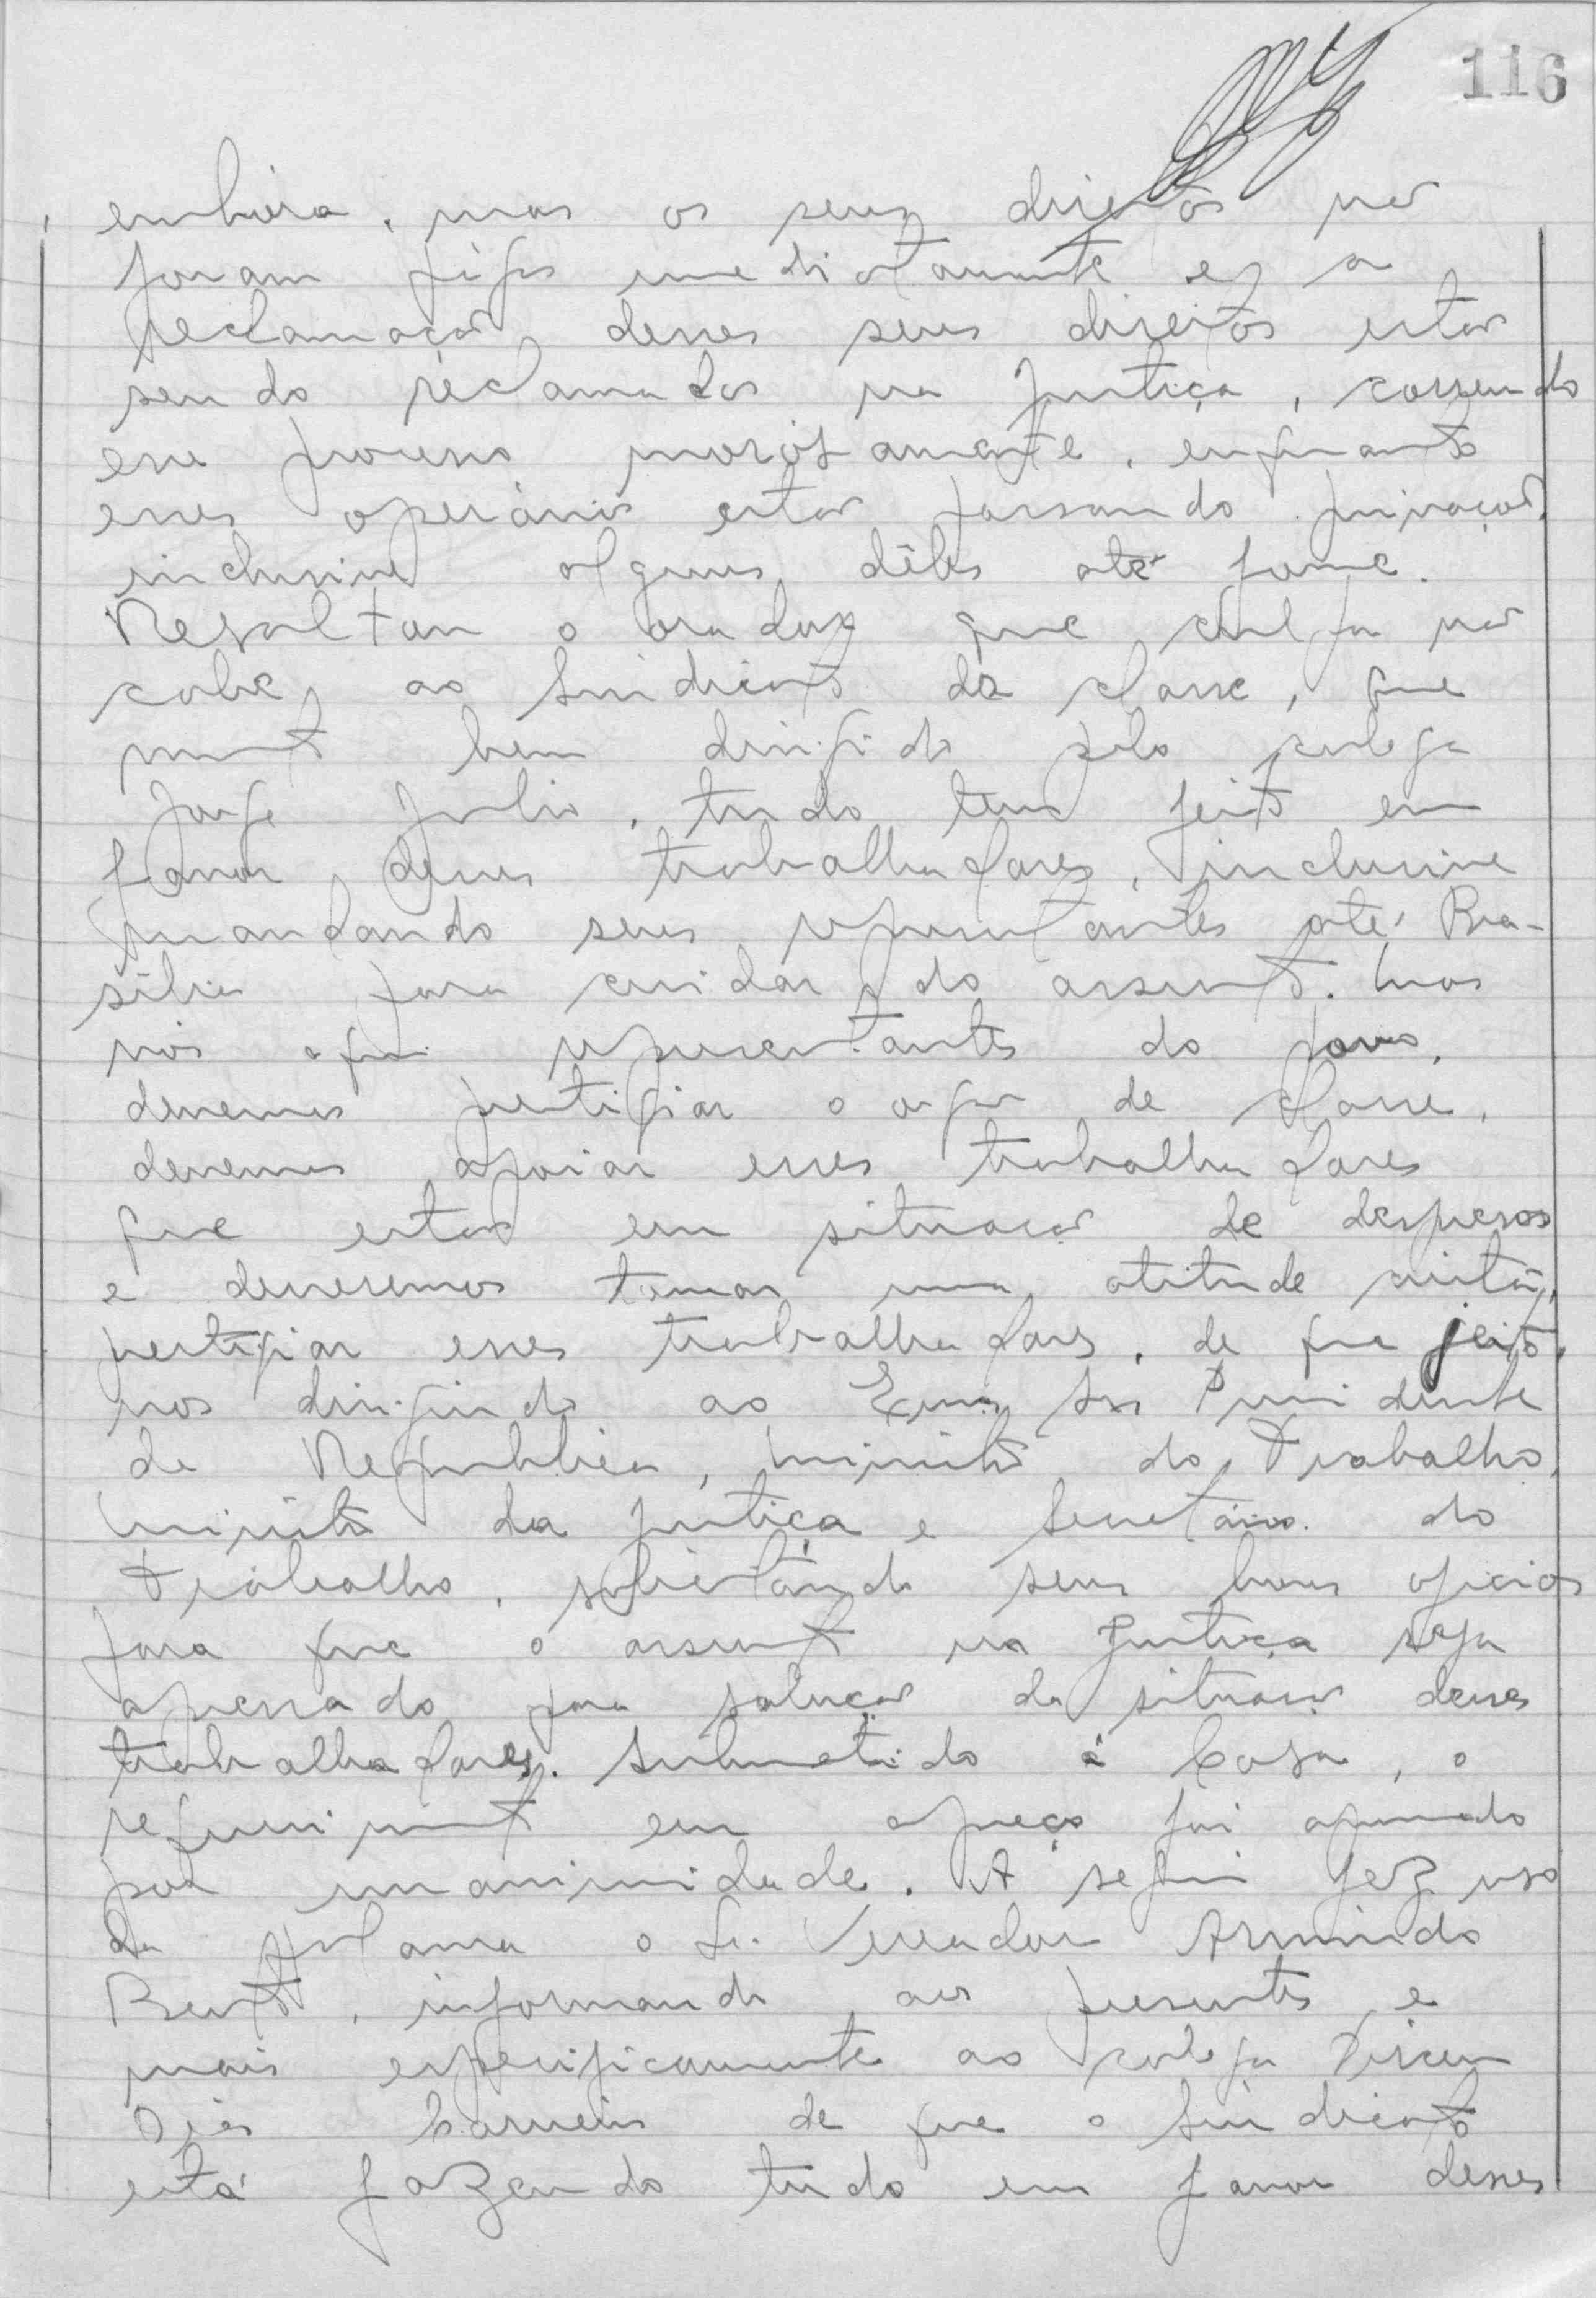 116
embora, mas os seus direitos não
foram pagos imediatamente e a
reclamação desses seus direitos estão
sendo reclamados na Justiça, correndo
esse processo morosamente, enquanto
esses operários estão passando privações,
inclusive alguns dêles até fome.
Ressaltou o orador que culpa não
cabe ao Sindicato da classe, que
muito bem dirigido pelo colega
Jorge Julio, tudo tem feito em
favor desses trabalhadores, inclusive
mandando seus representantes até Bra-
sília para cuidar do assunto. Mas
nós aqui representantes do povo,
devemos prestigiar o orgão de classe,
devemos apoiar esses trabalhadores
que estão em situação de desprezos
e deveremos tomar uma atitude cristã,
prestigiar esses trabalhadores, de que jeito,
nos dirigindo ao Exmo Sr Presidente
da Republica, Ministro do Trabalho,
Ministro da Justiça e Secretário do
Trabalho, solicitando seus bons oficios
para que o assunto na Justiça seja
apressado para solução da situação desses
trabalhadores. Submetido à Casa, o
requerimento em apreço foi aprovado
por unanimidade. A seguir fez uso
da palavra o Sr. Vereador Armindo
Bento, informando aos presentes e
mais especificamente ao colega
Dias Carneiro de que o Sindicato
está fazendo tudo em favor desses